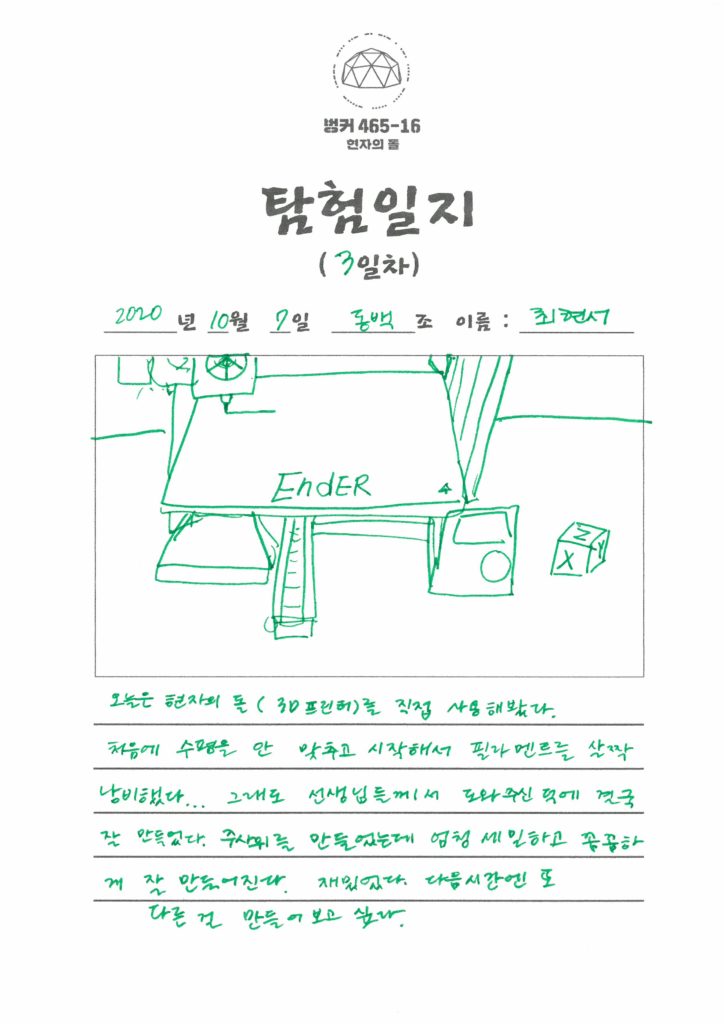 벙커 465-16
현자의 돌
탐험일지
( 3일차)
2020 년 10월 7일 동백 조 이름 : 최현서
EndER
Z
X Y
오늘은 현자의 돌 ( 3D프린터)를 직접 사용해봤다.
처음에 수평을 안 맞추고 시작해서 필라멘트를 살짝
낭비했다... 그래도 선생님들께서 도와주신 덕에 결국
잘 만들었다. 주사위를 만들었는데 엄청 세밀하고 꼼꼼하
게 잘 만들어진다. 재밌었다. 다음시간엔 또
다른 걸 만들어보고 싶다.